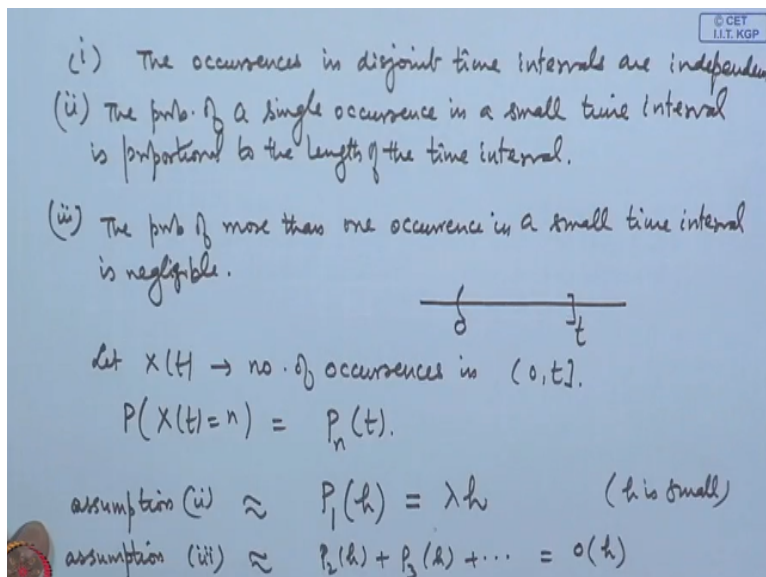 © CET
I.I.T. KGP
(i) The occurrences in disjoint time intervals are independen
(ii) The prob. of a single occurrence in a small time interval
is proportional to the length of the time interval.
(iii) The prob of more than one occurrence in a small time interval
is negligible.
0 t
Let X(t) → no. of occurrences in (0, t].
P(X(t) = n) = Pₙ(t).
assumption (ii) ≈ P₁(h) = λh (h is small)
assumption (iii) ≈ P₂(h) + P₃(h) + ⋯ = o(h)